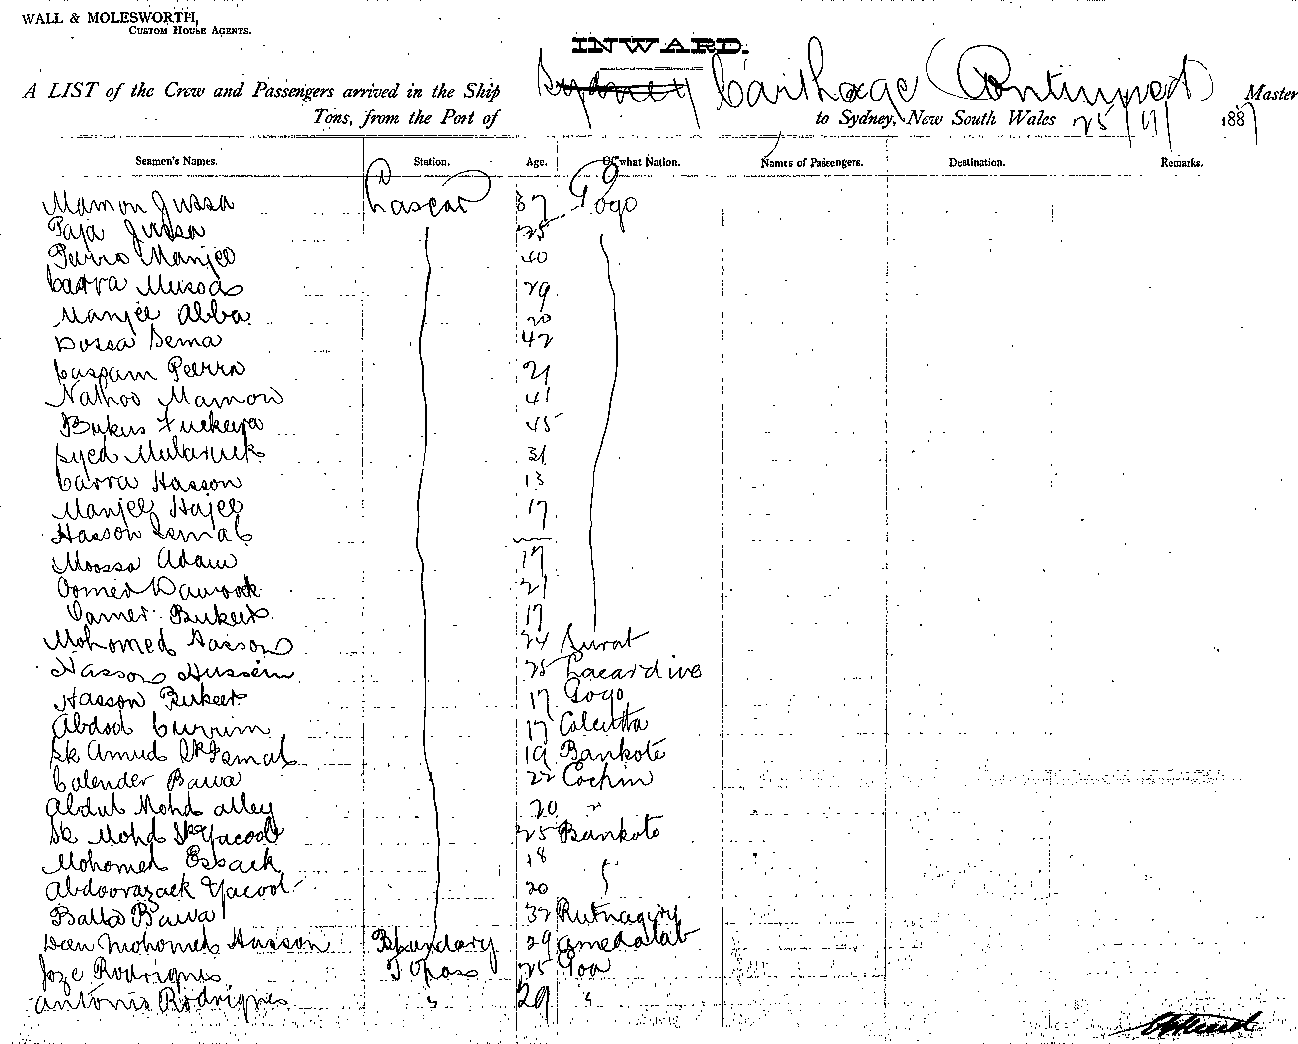 WALL & MOLESWORTH,
CUSTOM HOUSE AGENTS.
INWARD.
A LIST of the Crew and Passengers arrived in the Ship Sydney Carthage (Continued) Master
Tons, from the Port of to Sydney, New South Wales 25/11/ 1887
Seamen's Names. Station. Age. Of what Nation. Names of Passengers. Destination. Remarks.
Mamon Jussa Lascar 37 Gogo
Paja Jussa 25
Perro Manjee 40
Carra Mussa 29
Manjee Abba 20
Dossa Sema 42
Caspam Peerra 21
Nathoo Mamon 41
Bukus Fuckeera 45
Syed Mubaruck 31
Carra Hasson 13
Manjee Hajee 17
Hasson Ismal
Moossa Adam 17
Oomer Dawook 21
Oamer Bukeer 17
Mohomed Hasson 24 Surat
Hasson Hussein 25 Lacardive
Hasson Bukeer 17 Gogo
Abdod Currim 17 Calcutta
Sk Amud Sk Ismal 19 Bankote
Calender Bawa 22 Cochin
Abdul Mohd alley 20 "
Sk Mohd Sk Yacoob 25 Bankote
Mohomed Essack 18
Abdoorazack Yacoob 20
Balla Bawa 32 Rutnagiry
Deen Mohomed Hasson Bhundary 29 amedabab
Joze Rodrigues Topas 25 Goa
Antonio Rodrigues " 29 "